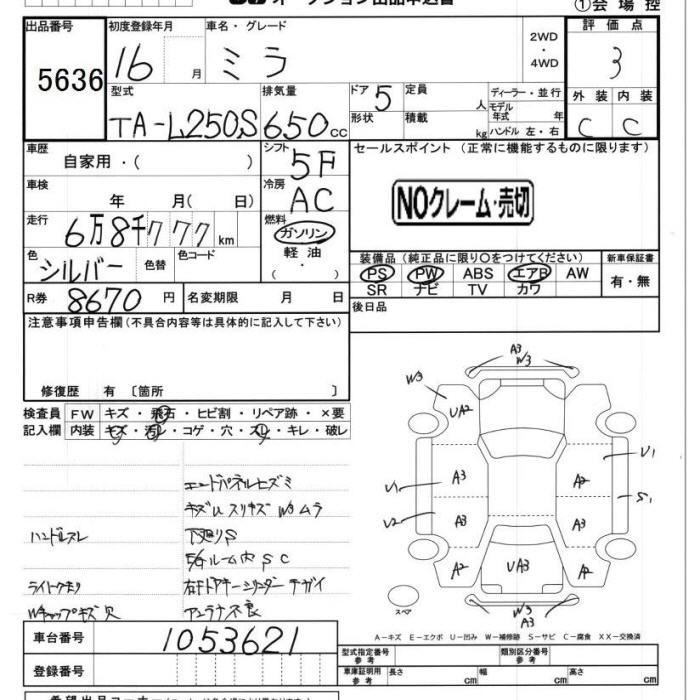 オークション出品申込書
①会場控
出品番号
5636
初度登録年月
16 月
車名・グレード
ミラ
2WD
・
4WD
評価点
3
型式
TA-L250S
排気量
650cc
ドア 5
形状
定員 人
積載 kg
ディーラー・並行
モデル年式 年
ハンドル 左・右
外装 内装
C C
車歴
自家用・( )
シフト
5F
セールスポイント (正常に機能するものに限ります)
NOクレーム・売切
車検
年 月( 日)
冷房
AC
走行
6万8千777km
燃料
ガソリン
軽油
・( )
色
シルバー
色替
色コード
装備品 (純正品に限り〇をつけてください)
新車保証書
PS PW ABS エアB AW
SR ナビ TV カワ
有・無
R券 8670 円
名変期限 月 日
後日品
注意事項申告欄(不具合内容等は具体的に記入して下さい)
修復歴 有 〔箇所 〕
検査員 FW キズ・飛石・ヒビ割・リペア跡・×要
記入欄 内装 キズ・汚レ・コゲ・穴・スレ・キレ・破レ
エンドパネルヒズミ
キズU スリキズ W3ムラ
ハンドルスレ
下廻りS
ルーム内 S C
ライトクモリ
右Fドアキーシリンダーチガイ
Wキャップキズ欠
アンテナ不良
A3
W3
W3
UA2
A3
A2
U1
U1
S1
U2
A3
A3
A2
UA3
A2
スペア
W3
A3
A－キズ E－エクボ U－凹み W－補修跡 S－サビ C－腐食 XX－交換済
車台番号
1053621
登録番号
型式指定番号
参考
類別区分番号
参考
車庫証明用
参考
長さ cm
幅 cm
高さ cm
希望出品コーナー